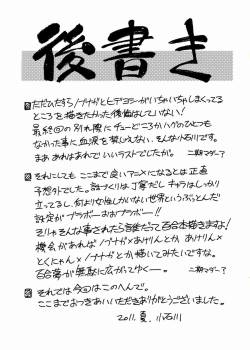 後書き
ただひたすらノブナガとヒデヨシがいちゃいちゃしまくってる
ところを描きたかった後悔はしていない!
最終回の別れ際にチューどころかハグのひとつも
なかった事に血涙を禁じえない、そんな小石川です。
まああれはあれでいいラストでしたが。 二期マダー?
それにしてもここまで良いアニメになるとは正直
予想外でした。話づくりは丁寧だしキャラはしっかり
立ってるし、何よりな性しかいない世界というぶっとんだ
設定がブラボーおおブラボー!!
そりゃそんな事されたら誰だって百合本描きますよ!
機会があればノブナガ×あけりんとか あけりん×
とくにゃん×ノブナガとか描いてみたいですな。
百合夢が無駄に広がってゆくー。 二期マダー?
それでは今回はこのへんで。
ここまでおつきあいいただきありがとうございました。
2011. 夏. 小石川